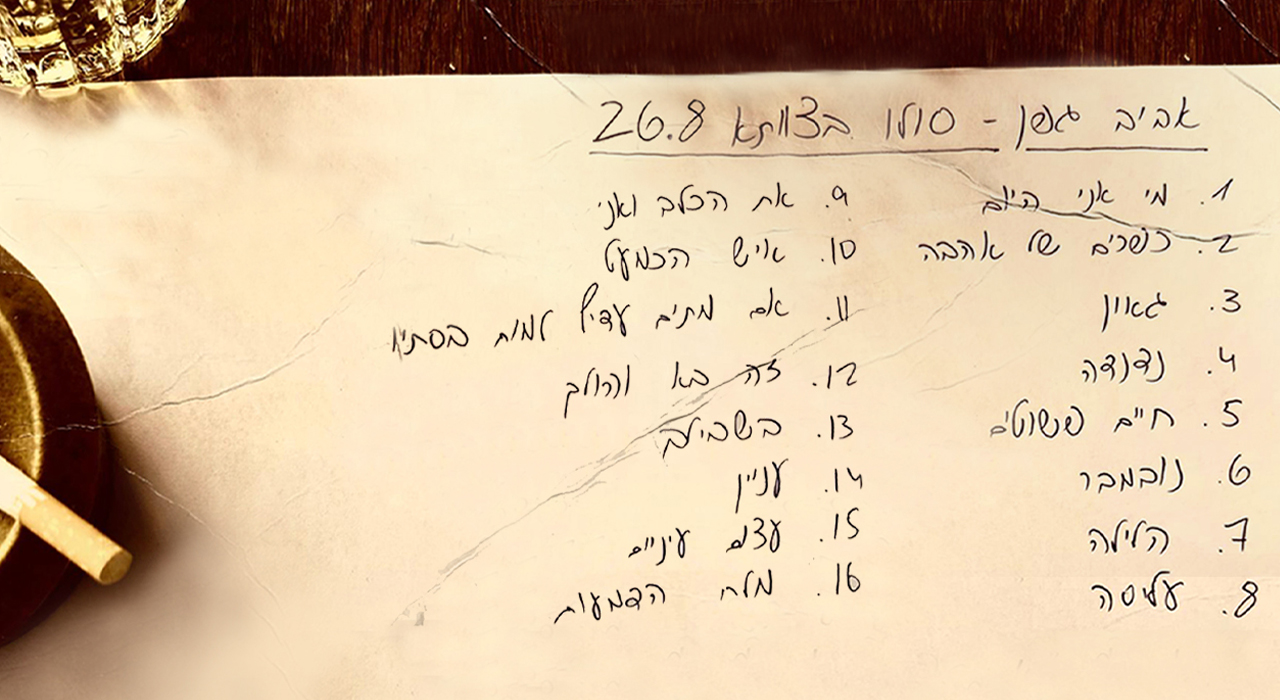 אביב גפן - סולו בצוותא 26.8
1. מי אני היום
2. כשרים של אהבה
3. גאון
4. נדנדה
5. חיים פשוטים
6. נובמבר
7. הלילה
8. עליסה
9. את הכלב ואני
10. איש הכמעט
11. אם מתים עדיף למות בסתיו
12. זה בא והולך
13. בשבילה
14. עניין
15. עצם עיניים
16. מלח הדמעות